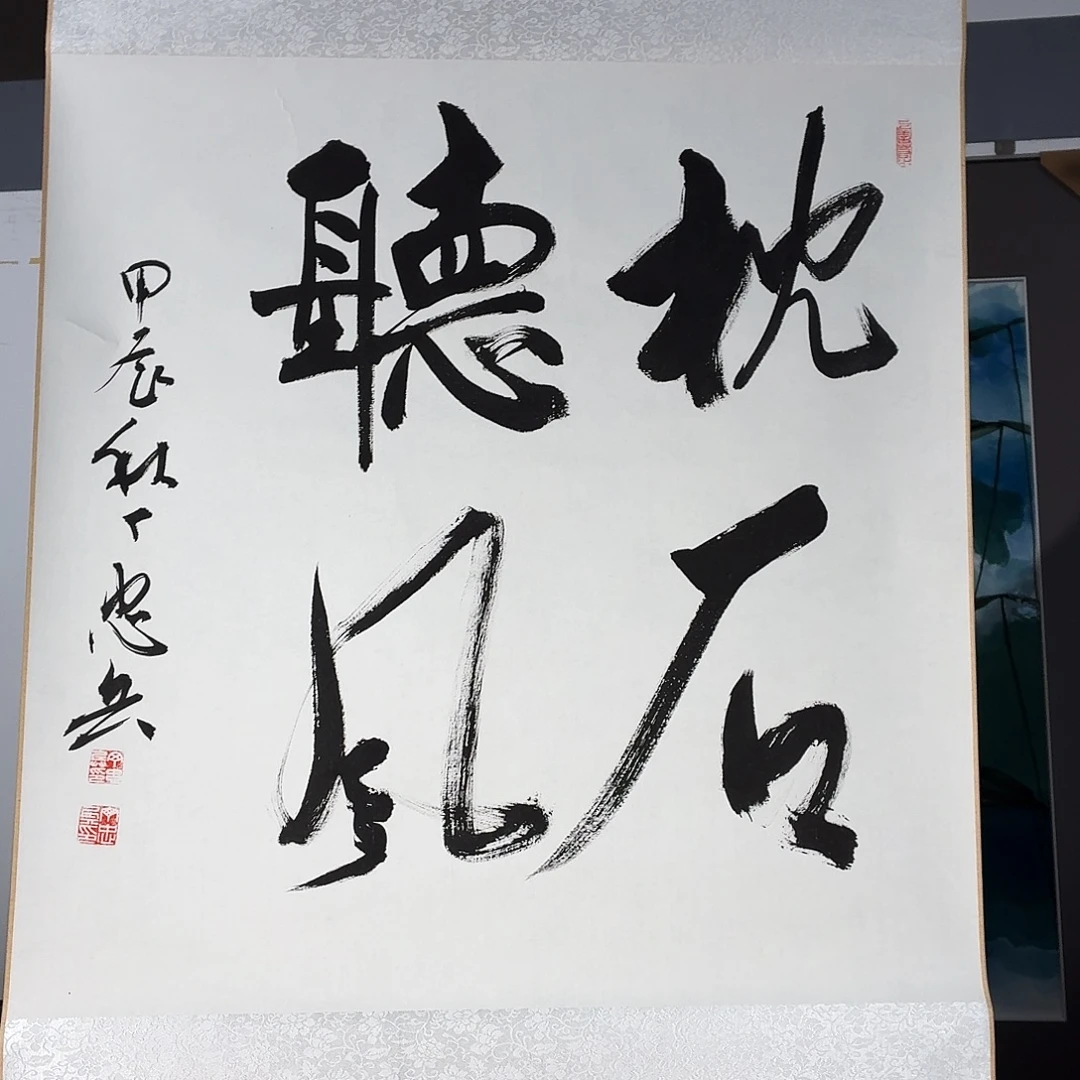 枕石
聽風
甲辰秋丁忠兵